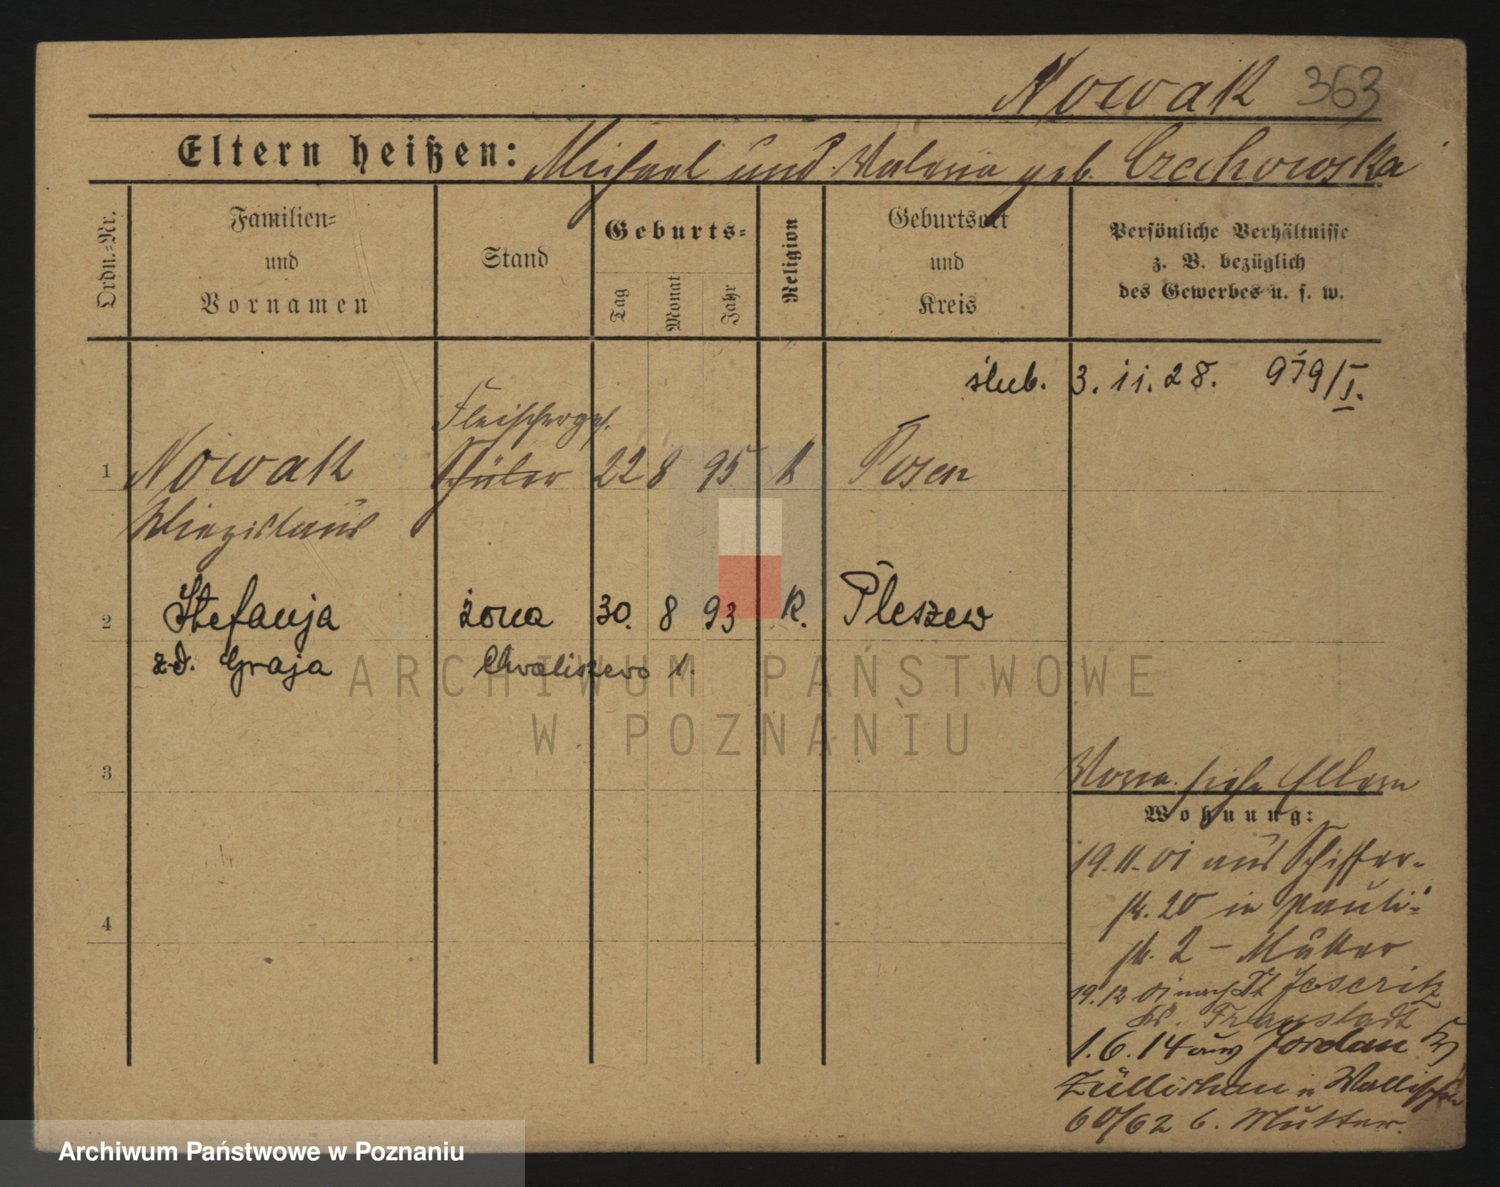 Nowak 363
Eltern heißen: Michael und Valeria geb. Czechowska
Ordn.=Nr.
Familien= und Vornamen
Stand
Geburts=
Tag
Monat
Jahr
Religion
Geburtsort und Kreis
Persönliche Verhältnisse
z. B. bezüglich
des Gewerbes u. s. w.
ślub. 3. 11. 28. 979/I.
Fleischergs.
1 Nowak Schüler 22 8 95 k Posen
2 Stefanja żona 30. 8 93 K. Pleszew
z d. Graja Chwaliszewo 1.
ARCHIWUM PAŃSTWOWE
W POZNANIU
3
siehe Eltern
Wohnung:
19.11.01 aus Schiffer-
str. 20 in Pauli-
4
str. 2 – Mutter
19.12 01 nach
Kr. Fraustadt
1.6.14 aus Jordan Kr
Züllichau in Wallischei
60/62 b. Mutter.
Archiwum Państwowe w Poznaniu